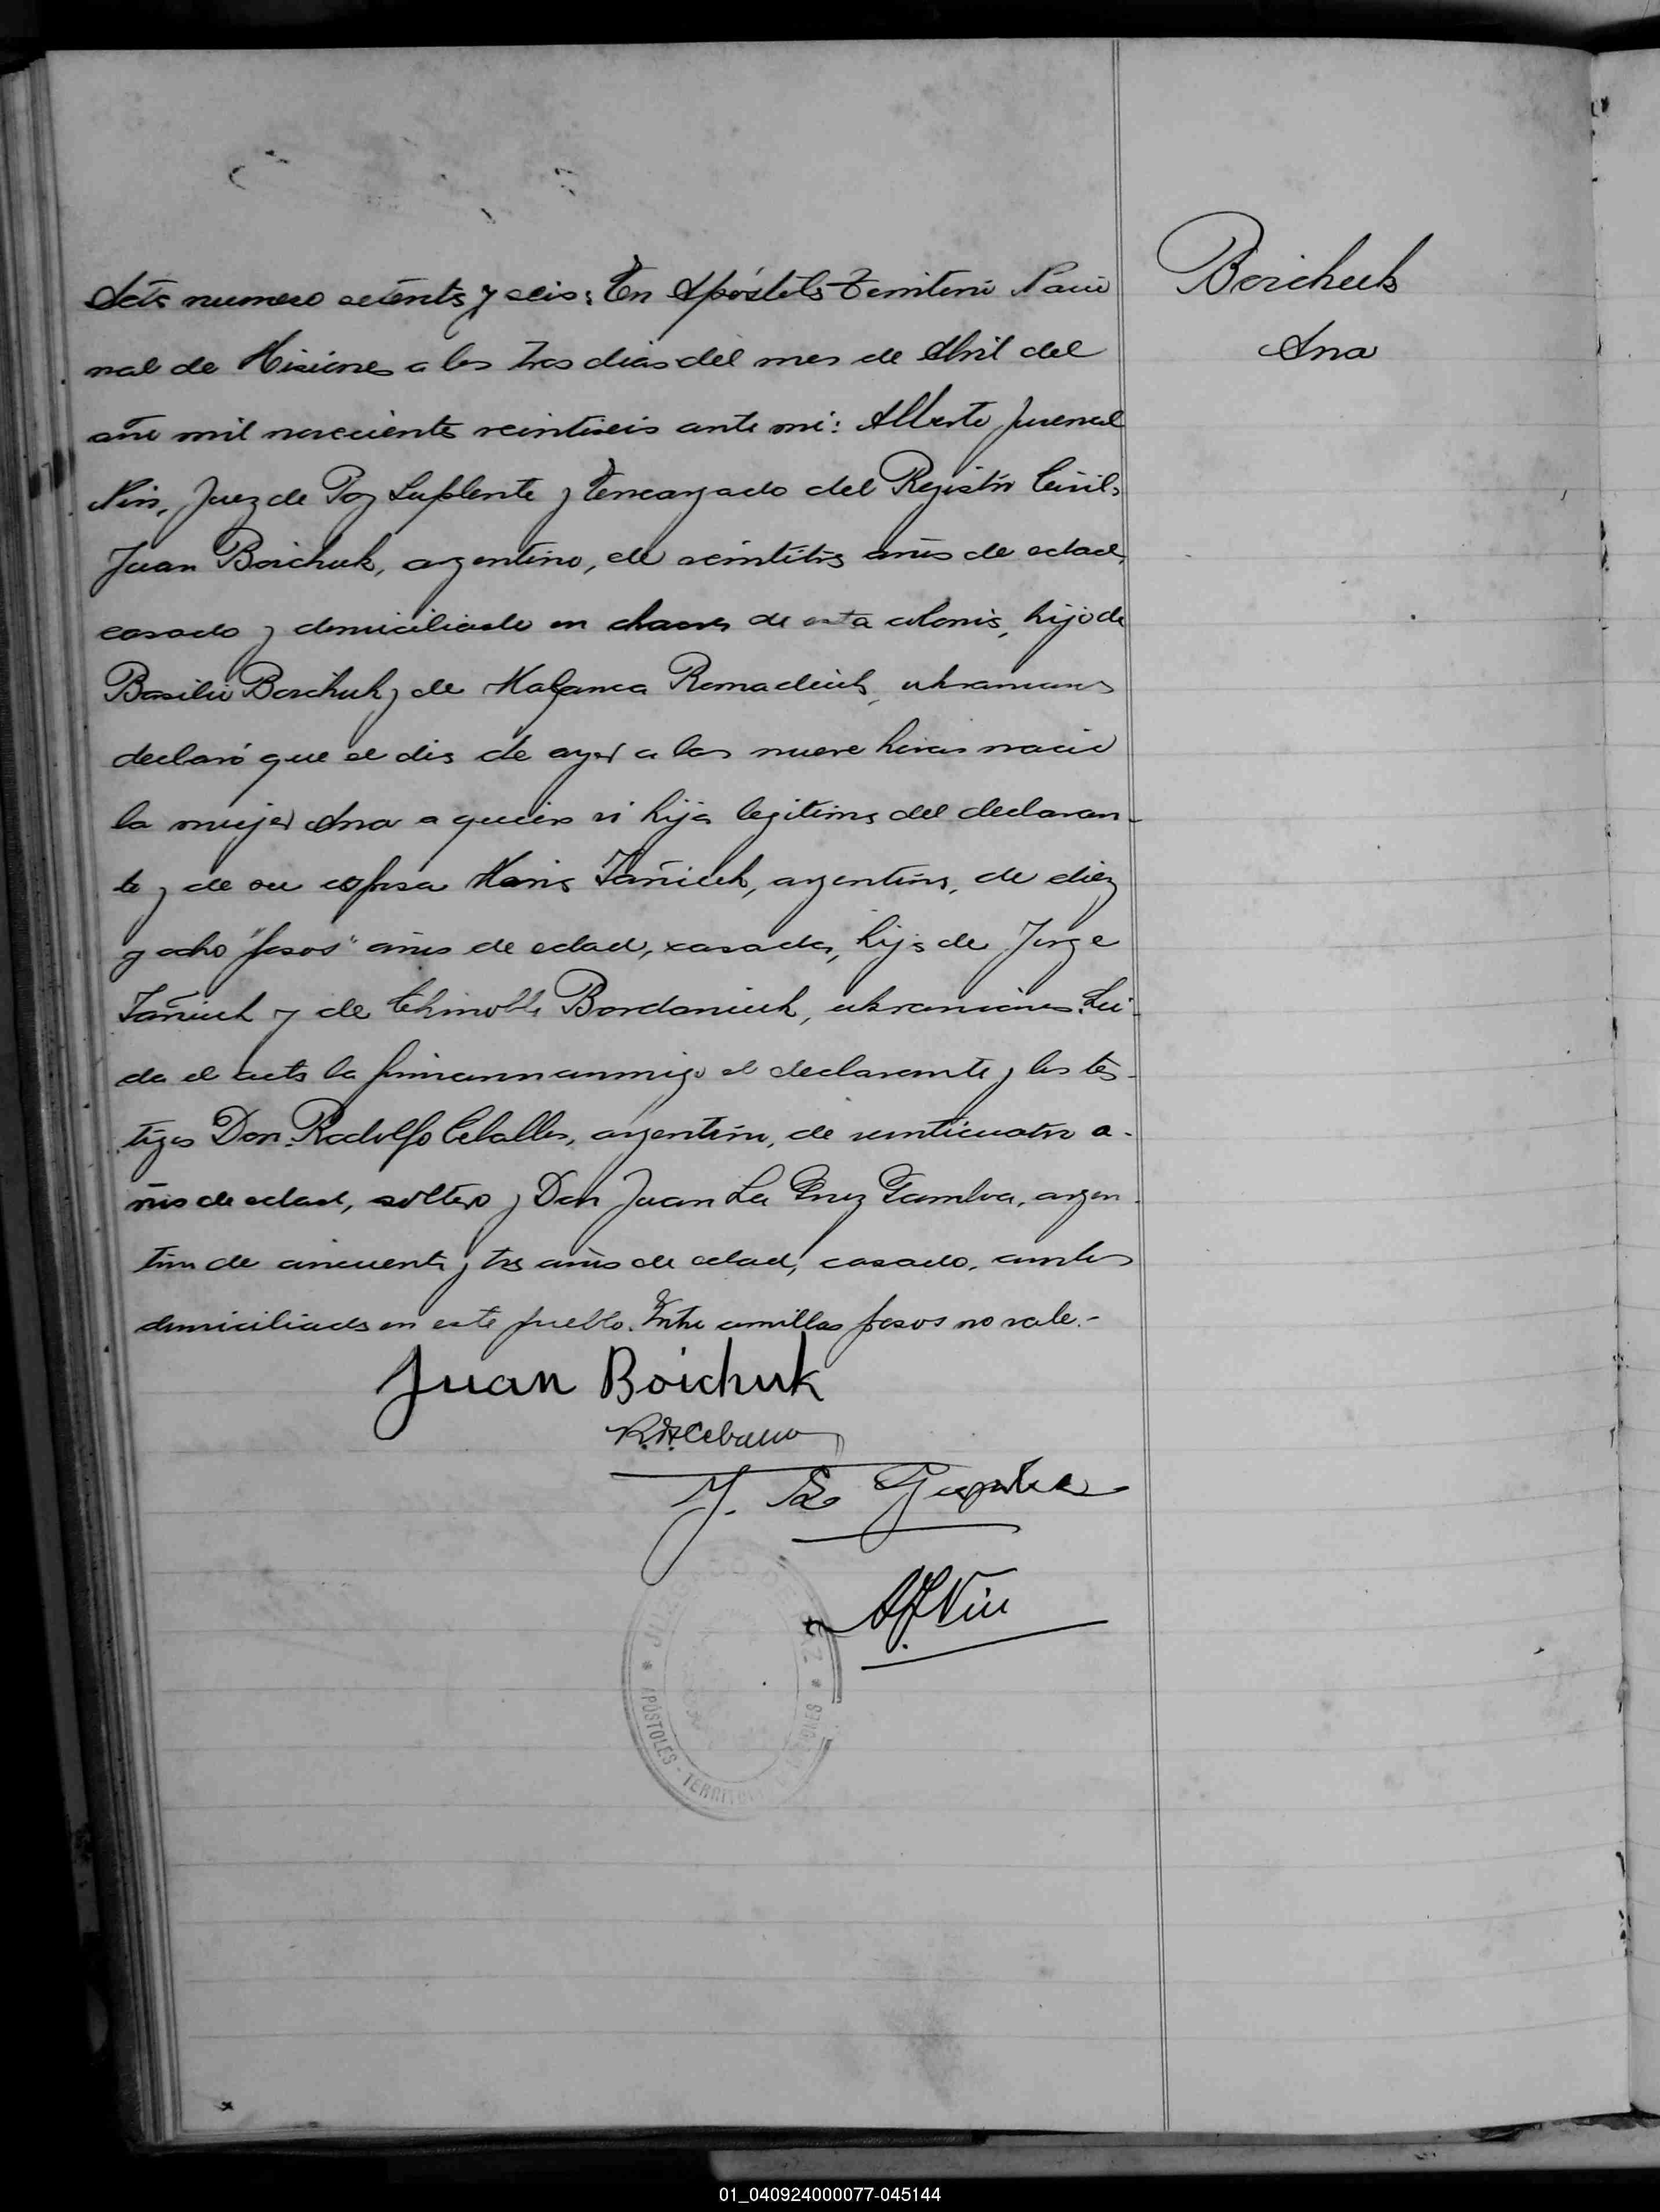 Acta numero setenta y seis: En Apóstoles Territorio Nacio
nal de Misiones a los tres dias del mes de Abril del
año mil novecientos veintiseis ante mi: Alberto Juvenal
Nin, Juez de Paz Suplente y Encargado del Registro Civil,
Juan Boichuk, argentino, de veintitrés años de edad,
casado y domiciliado en chacra de esta colonia, hijo de
Basilio Boichuk y de Romaniuk, ukranianos
declaró que el dia de ayer a las nueve horas nació
la mujer Ana a quien vi hija legitima del declaran-
te y de su esposa Maria Tañiuk, argentina, de diez
y ocho "pesos" años de edad, casada, hija de Jorge
Tañiuk y de Bordaniuk, ukranianos. Lei-
da el acta la firmaron conmigo el declarante y los tes-
tigos Don Rodolfo Ceballos, argentino, de veinticuatro a-
ños de edad, soltero y Don Juan La Cruz Gamboa, argen-
tino de cincuenta y tres años de edad, casado, ambos
domiciliados en este pueblo. Entre comillas pesos no vale.-
Juan Boichuk
R. H. Ceballos
J. L. Gamboa
A J Nin
JUZGADO DE PAZ * APÓSTOLES - TERRITORIO MISIONES *
Boichuk
Ana
01_040924000077-045144